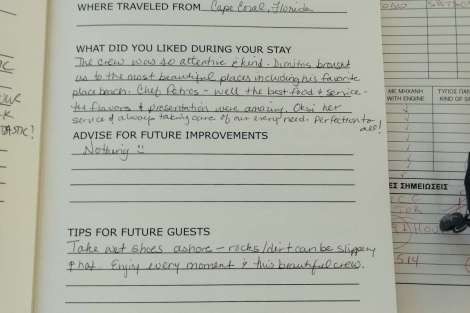 WHERE TRAVELED FROM Cape Coral, Florida
WHAT DID YOU LIKED DURING YOUR STAY
The crew was so attentive & kind. Dimitris brought
us to the most beautiful places including his favorite
place beach. Chef Petros - well the best food & service -
the flavors & presentation were amazing. Oksi her
service & always taking care of our every need. Perfection to
all!
ADVISE FOR FUTURE IMPROVEMENTS
Nothing
TIPS FOR FUTURE GUESTS
Take wet shoes ashore - rocks/dirt can be slippery
& hot. Enjoy every moment & this beautiful crew.
ΜΕ ΜΗΧΑΝΗ
WITH ENGINE
ΤΥΠΟΣ
KIND OF
ΣΗΜΕΙΩΣΕΙΣ